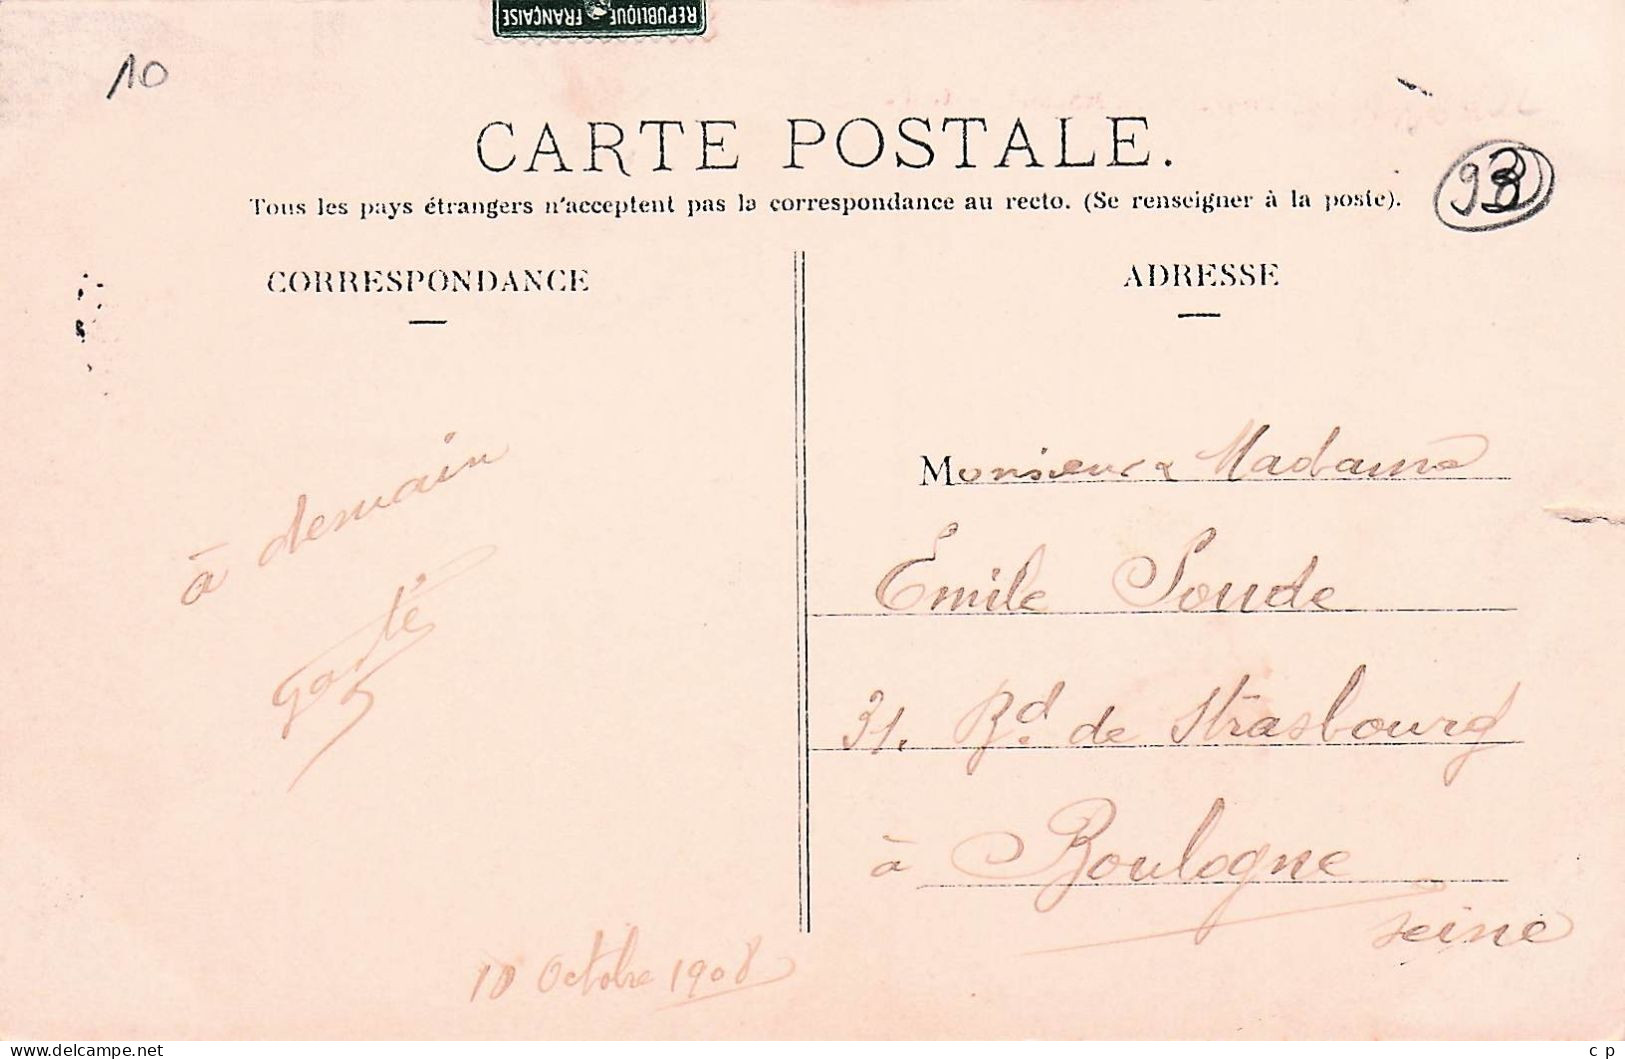 REPUBLIQUE FRANÇAISE
10
CARTE POSTALE.
Tous les pays étrangers n'acceptent pas la correspondance au recto. (Se renseigner à la poste).
93
CORRESPONDANCE
ADRESSE
à demain
10 Octobre 1908
Monsieur & Madame
Emile Soude
31. Bd. de Strasbourg
à Boulogne
Seine
c p